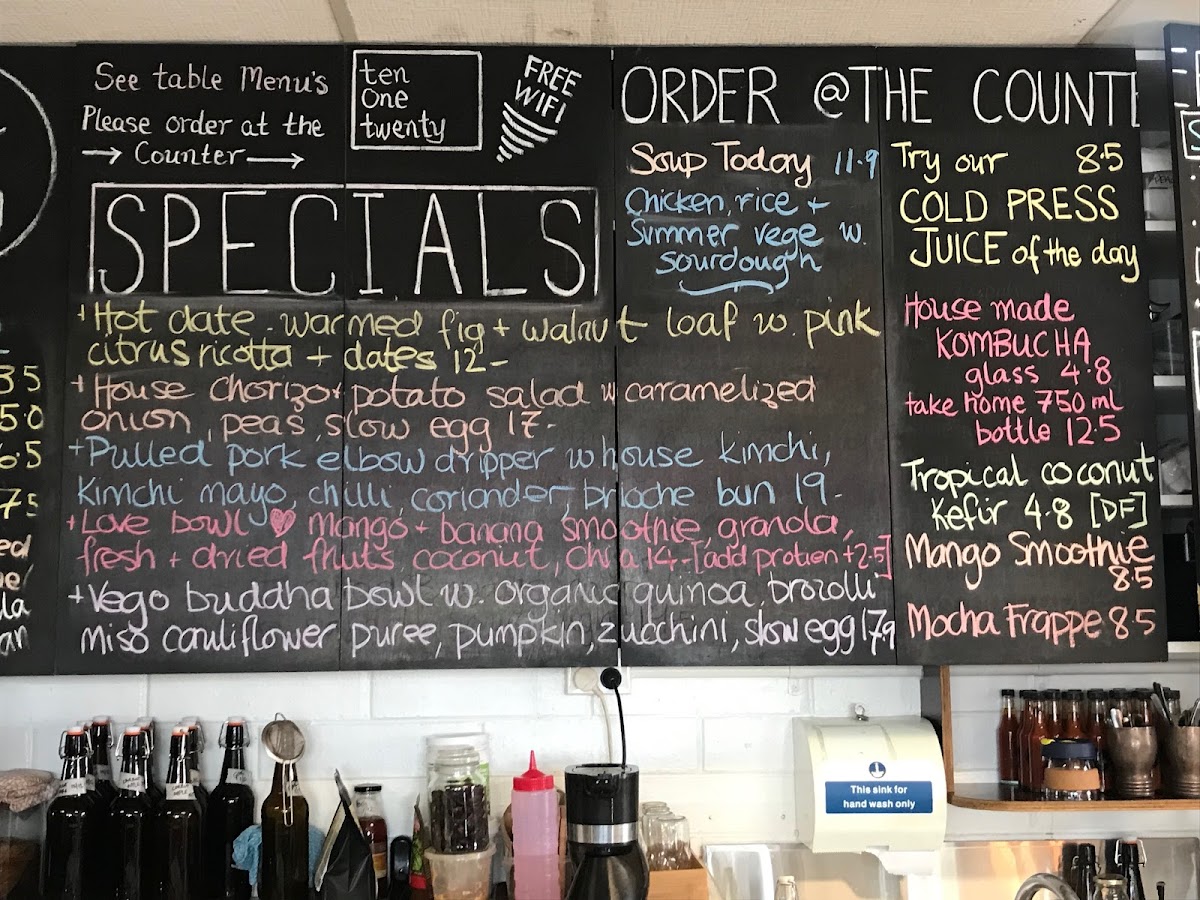 See table Menu's
Please order at the
→ Counter →
ten
one
twenty
FREE
WIFI
ORDER @THE COUNTE
SPECIALS
+Hot date - warmed fig + walnut loaf w. pink
citrus ricotta + dates 12-
+House chorizo + potato salad w caramelized
onion, peas, slow egg 17-
+Pulled pork elbow dripper w house kimchi,
kimchi mayo, chilli, coriander, brioche bun 19-
+Love bowl ♥ mango + banana smoothie, granola,
fresh + dried fruits coconut, chia 14-[add protien +2.5]
+Vego buddha bowl w. organic quinoa, brozolli
miso cauliflower puree, pumpkin, zucchini, slow egg 17.9
Soup Today 11.9
Chicken, rice +
Summer vege w.
sourdough
Try our 8.5
COLD PRESS
JUICE of the day
House made
KOMBUCHA
glass 4.8
take home 750ml
bottle 12.5
Tropical coconut
Kefir 4.8 [DF]
Mango Smoothie
8.5
Mocha Frappe 8.5
35
50
6.5
75
This sink for
hand wash only